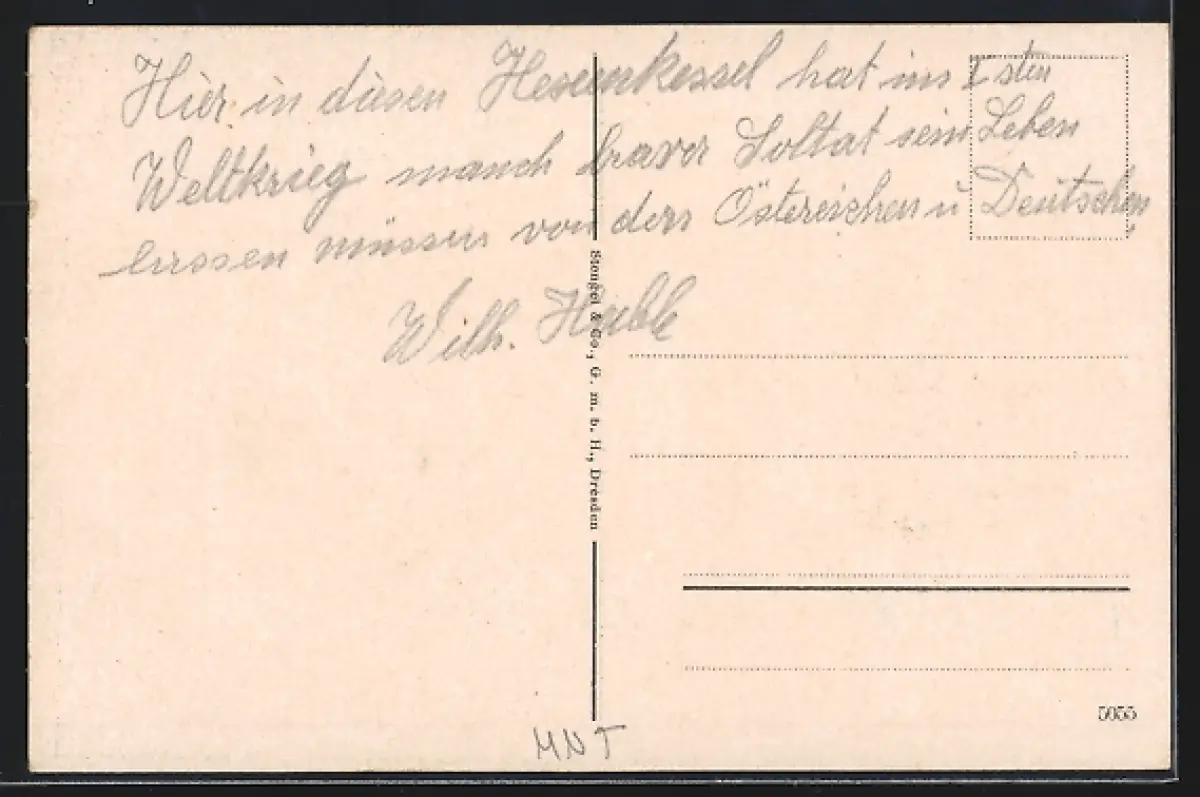 Hier in diesen Hexenkessel hat im 1sten
Weltkrieg manch braver Soltat sein Leben
lassen müssen von den Östereichen u Deutschen,
Wilh.
Stengel & Co., G. m. b. H., Dresden
5055
MNT